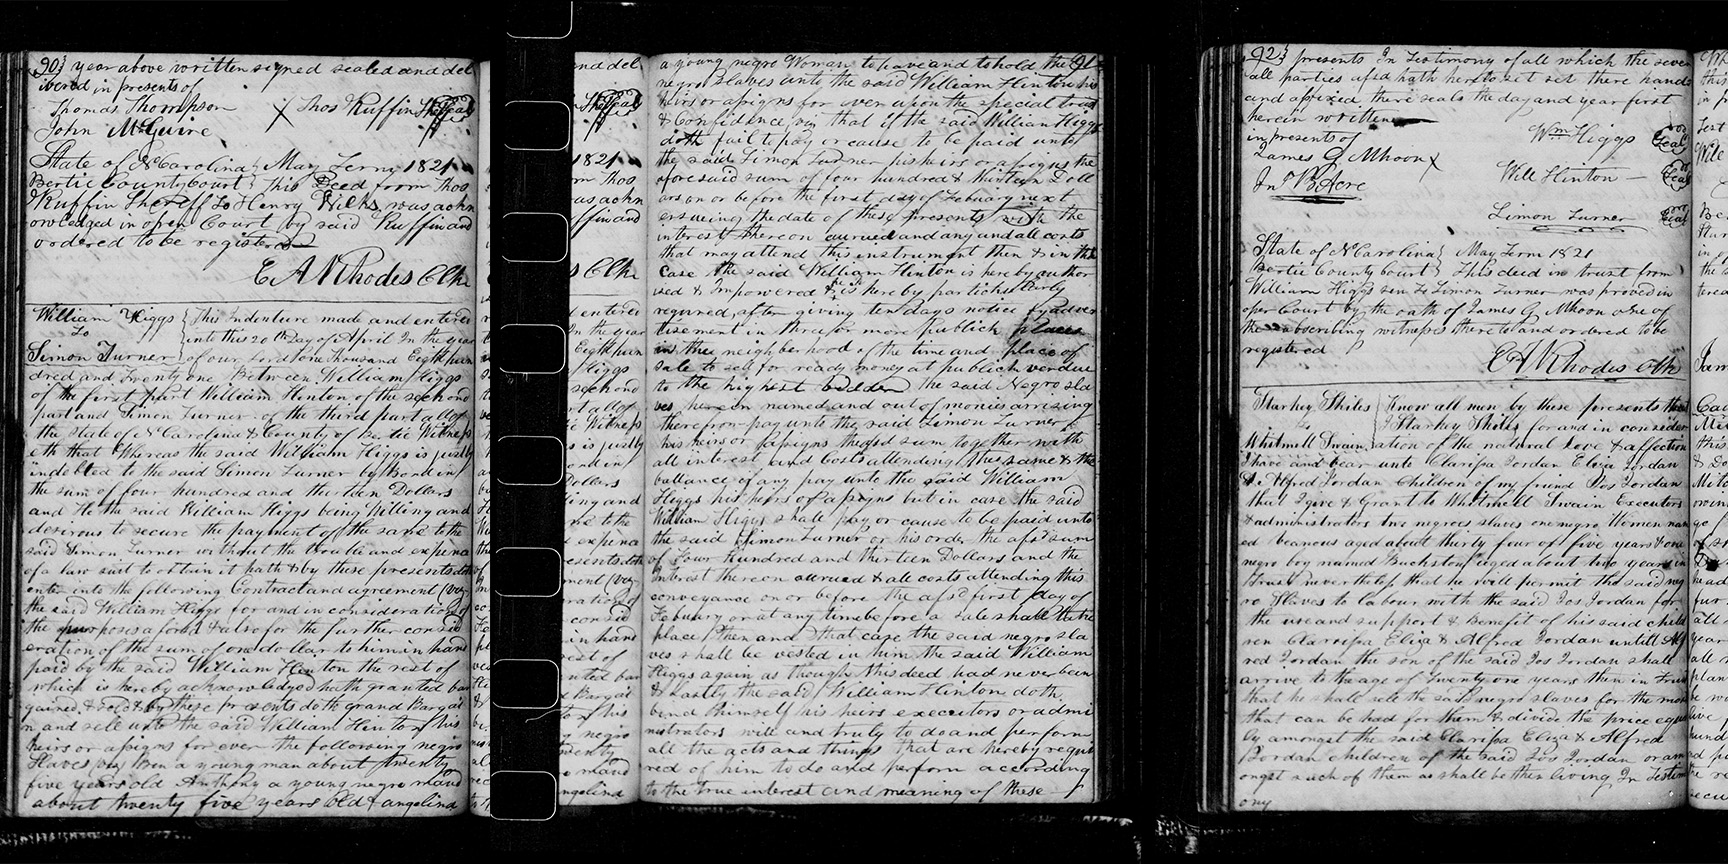 90} year above written signed sealed and del
ivered in presents of
Thomas Thompson
John McGuire
X Thos Ruffin Sheff Seal
State of NCarolina } May Term 1821
Bertie County Court } This Deed from Thos
Ruffin Sheriff to Henry Wilks was ackn
owledged in open Court by said Ruffin and
ordered to be registered
E A Rhodes Clk
William Higgs
To
Simon Turner
This Indenture made and entered
into this 20th Day of April In the year
of our Lord one thousand Eight hun
dred and twenty one Between William Higgs
of the first part William Hinton of the second
part and Simon Turner of the third part all of
the State of NCarolina & County of Bertie Witness
eth that Whereas the said William Higgs is justly
indebted to the said Simon Turner by Bond in
the sum of four hundred and thirteen Dollars
and He the said William Higgs being Willing and
desirous to secure the payment of the same to the
said Simon Turner without the trouble and expence
of a law suit to obtain it hath & by these presents doth
enter into the following Contract and agreement (viz)
the said William Higgs for and in consideration of
the purposes afored & also for the further consid
eration of the sum of one dollar to him in hand
paid by the said William Hinton the rest of
which is hereby acknowledged hath granted bar
gained & sold & by these presents doth grand Bargai
n and sell unto the said William Hinton his
heirs or assigns for ever the following negro
Slaves (viz) Ben a young man about twenty
five years old Anthony a young negro mand
about twenty five years old & angelina
nd del
1821
m Thos
as ackn
ffin and
s Clk
entered
In the year
Eight hun
Higgs
second
rt all of
Witness
is justly
ond in
Dollars
ling and
me to the
expence
esents doth
ment (viz)
ration of
consid
in hand
rest of
nted bar
Bargai
his
negro
twenty
mand
angelina
a young negro Woman to have and to hold the 91
negro slaves unto the said William Hinton his
heirs or assigns for ever upon the special trust
& Confidence viz that if the said William Higgs
doth fail to pay or cause to be paid unto
the said Simon Turner his heirs or assigns the
aforesaid sum of four hundred & thirteen Doll
ars on or before the first day of Febuary next
ensueing the date of these presents with the
interest thereon acrued and any and all costs
that may attend this instrument then & in that
case the said William Hinton is here by author
ised & Impowered & is hereby particularly
required after giving ten days notice by adver
tisement in three or more publick places
in thee neighberhood of the time and place of
sale to sell for ready money at publick vendue
to the highest bidder the said Negro sla
ves herein named and out of monies arrising
therefrom pay unto the said Simon Turner
his heirs or assigns the sd sum together with
all interest and Costs attending this same & the
ballance if any pay unto the said William
Higgs his heirs or assigns but in case the said
William Higgs shall pay or cause to be paid unto
the said Simon Turner or his order the afsd sum
of Four hundred and thirteen Dollars and the
Interest thereon accrued & all costs attending this
conveyance on or before the afsd first day of
Febuary or at any time before a sale shall take
place then and that case the said negro sla
ves shall be vested in him the said William
Higgs again as though this deed had never been
& Lastly the said William Hinton doth
bind himself his heirs executors or admi
nistrators will and truly to do and perform
all the acts and things that are hereby requi
red of him to do and perform according
to the true interest and meaning of these
92} presents In Testimony of all which the sever
all parties afsd hath hereto set set there hands
and affixed there seals the day and year first
herein written
in presents of
James G Mhoon X
Wm Higgs Seal
Will Hinton Seal
Simon Turner Seal
State of NCarolina } May Term 1821
Bertie County Court } This deed in trust from
William Higgs sen To Simon Turner was proved in
open Court by the oath of James G Mhoon one of
the subscribing witness thereto and ordered to be
registered
E A Rhodes Clk
Starkey Skiles
to
Whitmell Swain
Know all men by these presents that
I Starkey Skiles for and in consider
ation of the natural love & affection
I have and bear unto Clarissa Jordan Eliza Jordan
& Alfred Jordan Children of my friend Jos Jordan
that I give & Grant to Whitmell Swain Executors
& administrators two negroes slaves one negro Women nam
ed beanous aged about thirty four or five years & one
negro boy named Buckston aged about two years in
trust nevertheless that he will permit the said neg
ro Slaves to labour with the said Jos Jordan for
the use and support & Benefit of his said child
ren Clarissa Eliza & Alfred Jordan untill Alf
red Jordan the son of the said Jos Jordan shall
arrive to the age of Twenty one years then in trust
that he shall sell the said negro slaves for the most
that can be had for them & divide the price equa
ly amongst the said Clarissa Eliza & Alfred
Jordan children of the said Jos Jordan or am
ongst such of them as shall be then living In testim
ony